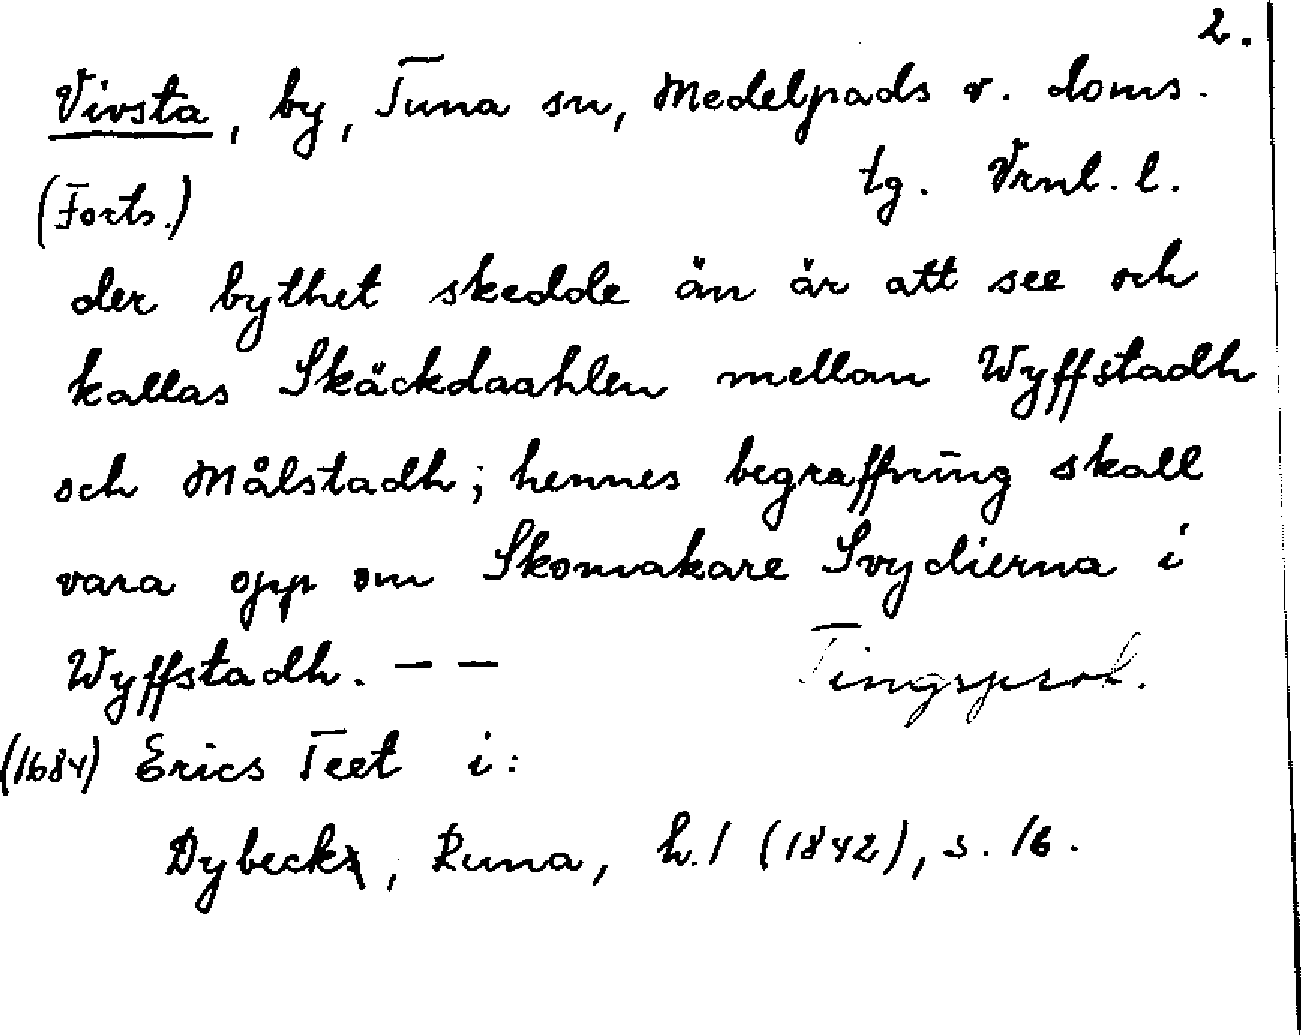 2.
Vivsta, by, Tuna sn, Medelpads v. doms.
tg. Vrnl. l.
(Forts.)
der bythet skedde än är att see och
kallas Skäckdaahlen mellan Wyffstadh
och Målstadh; hennes begraffning skall
vara opp om Skomakare Svydierna i
Wyffstadh. — —
Tingsprot.
(1684) Erics Teet i:
Dybeck, Runa, h. 1 (1842), s. 16.